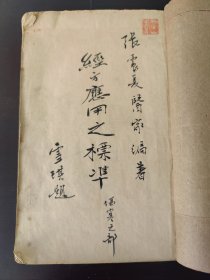 張震夏醫家編著
經方應用之標準
傷寒之部
題